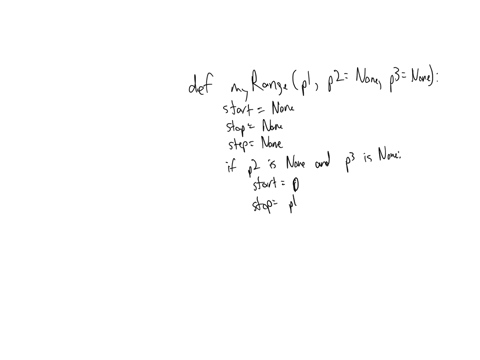 def myRange(p1, p2=None, p3=None):
start = None
stop = None
step = None
if p2 is None and p3 is None:
start = 0
stop = p1